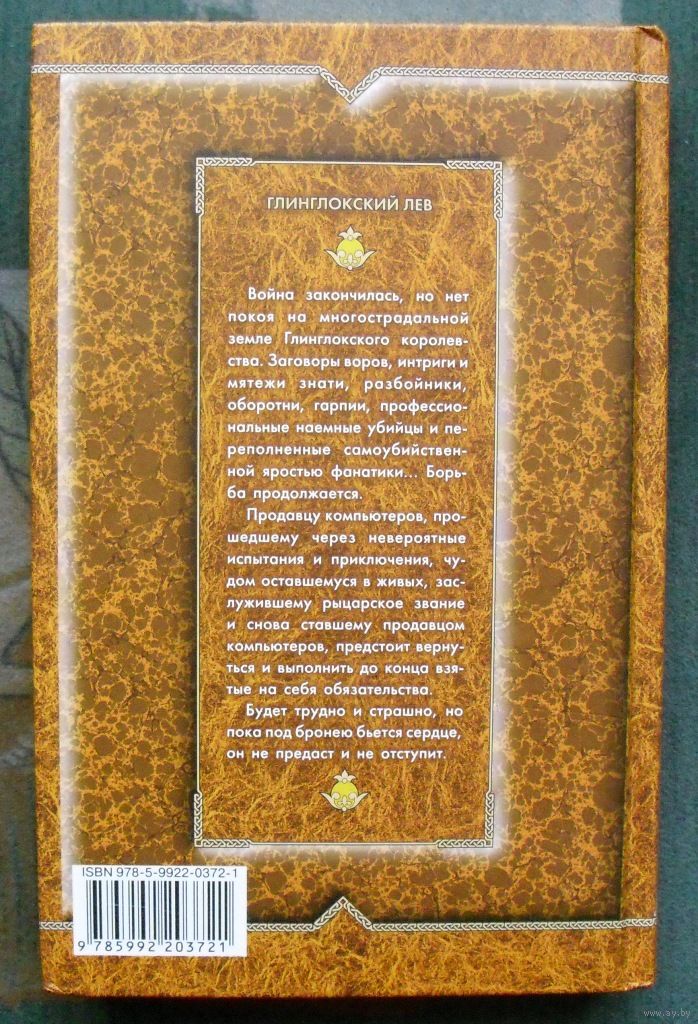 ГЛИНГЛОКСКИЙ ЛЕВ
Война закончилась, но нет
покоя на многострадальной
земле Глинглокского королев-
ства. Заговоры воров, интриги и
мятежи знати, разбойники,
оборотни, гарпии, профессио-
нальные наемные убийцы и пе-
реполненные самоубийствен-
ной яростью фанатики... Борь-
ба продолжается.
Продавцу компьютеров, про-
шедшему через невероятные
испытания и приключения, чу-
дом оставшемуся в живых, зас-
лужившему рыцарское звание
и снова ставшему продавцом
компьютеров, предстоит верну-
ться и выполнить до конца взя-
тые на себя обязательства.
Будет трудно и страшно, но
пока под бронею бьется сердце,
он не предаст и не отступит.
ISBN 978-5-9922-0372-1
9 785992 203721
www.ay.by